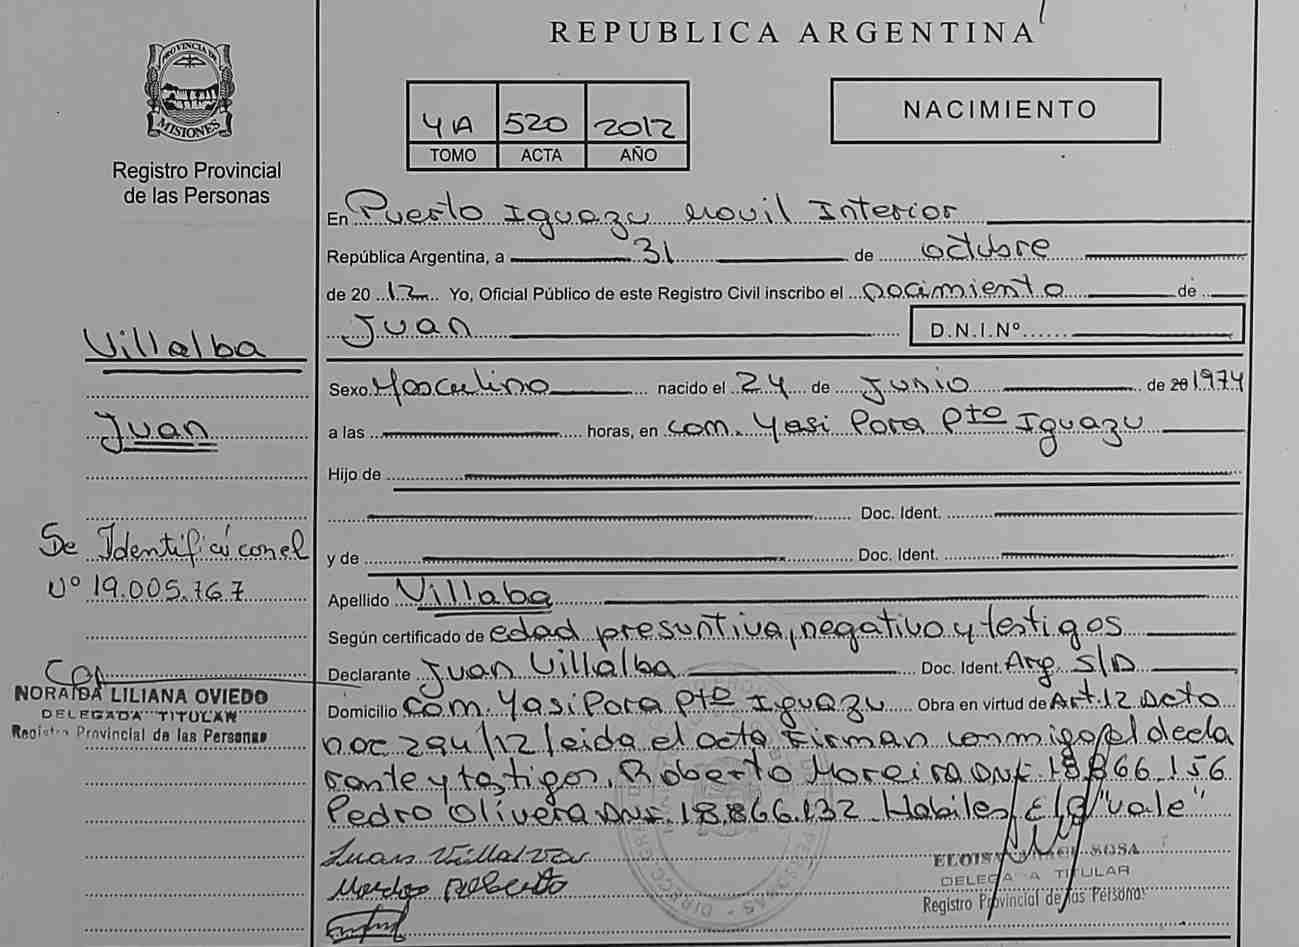 REPUBLICA ARGENTINA
PROVINCIA DE
MISIONES
Registro Provincial
de las Personas
4A 520 2012
TOMO ACTA AÑO
NACIMIENTO
En Puerto Iguazu Movil Interior
República Argentina, a 31 de octubre
de 20 12 Yo, Oficial Público de este Registro Civil inscribo el nacimiento de
Juan D.N.I.Nº
Villalba
Juan
Sexo Masculino nacido el 24 de Junio de 20 1974
a las horas, en com. Yasi Pora Pto Iguazu
Hijo de
Doc. Ident.
y de Doc. Ident.
Se Identificó con el
Nº 19.005.767
Apellido Villaba
Según certificado de edad presuntiva, negativo y testigos
Declarante Juan Villalba Doc. Ident. Arg S/D
Domicilio Com. Yasi Pora Pto Iguazu Obra en virtud de Art. 12 Dcto
nac 294/12 leida el acta Firman conmigo el decla
rante y testigos. Roberto Moreira DNI. 18.866.156
Pedro Olivera DNI. 18.866.132 Habiles "vale"
NORAIDA LILIANA OVIEDO
DELEGADA TITULAR
Registro Provincial de las Personas
Juan Villalva
Roberto
ELOISA SOSA
DELEGADA TITULAR
Registro Provincial de las Personas